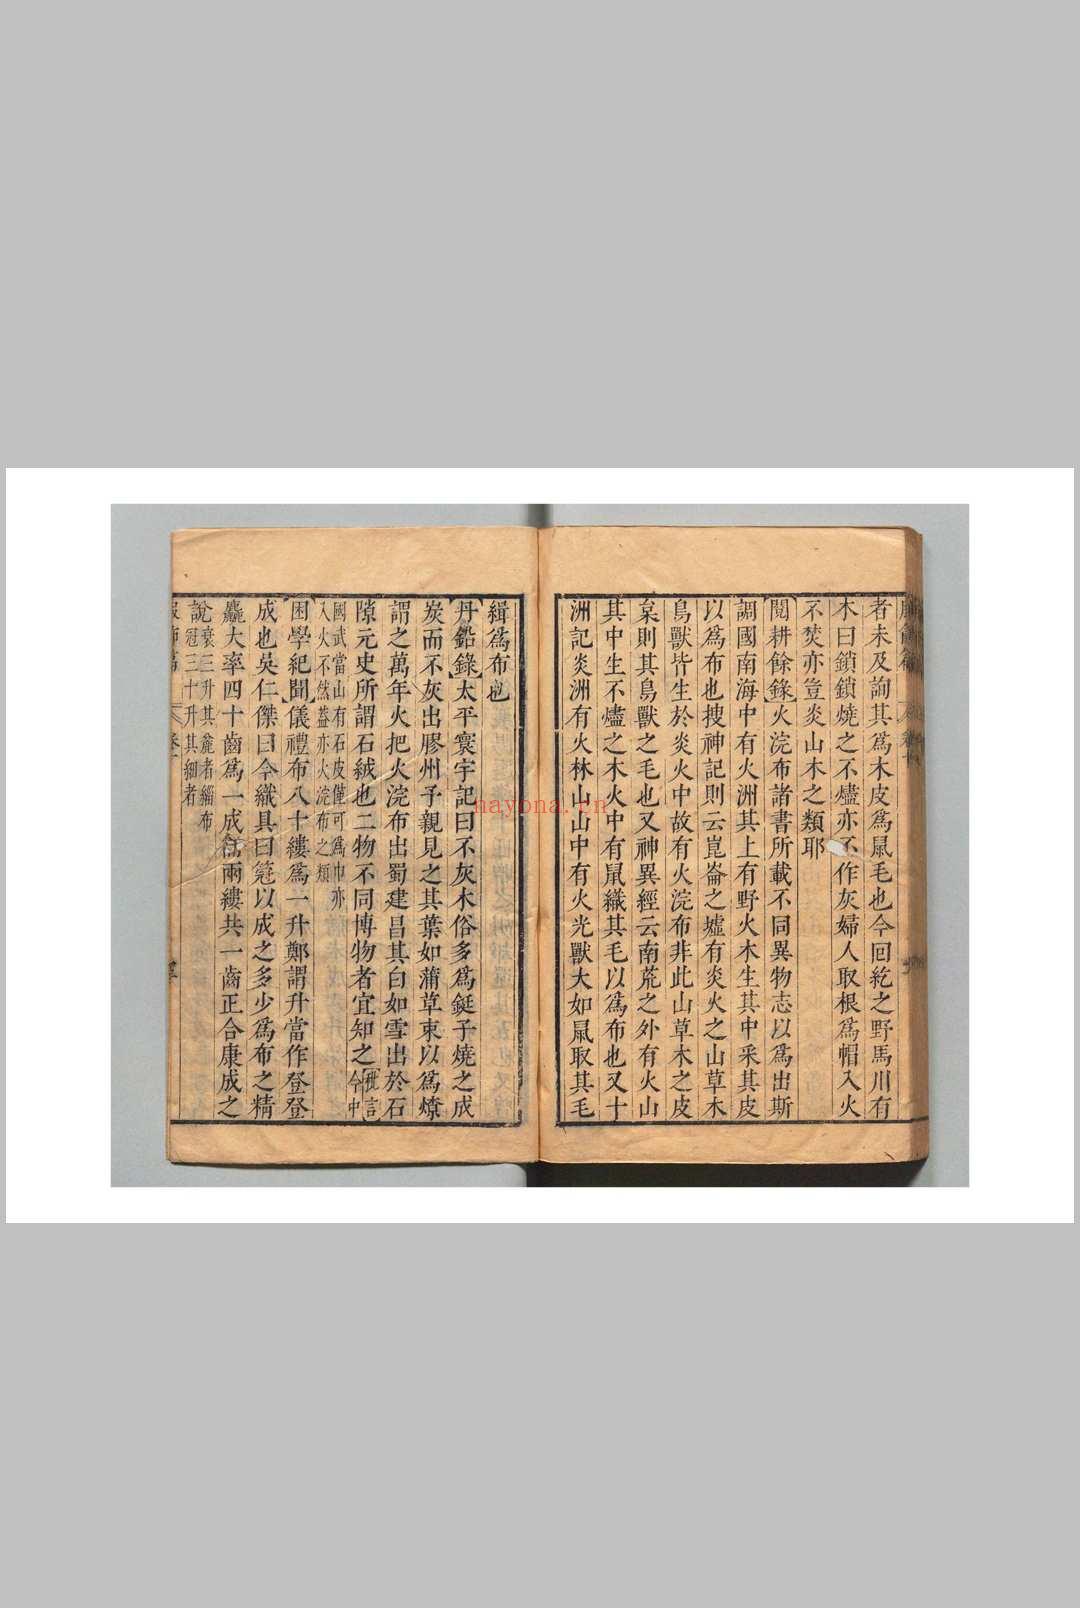 者未及詢其爲木皮爲鼠毛也今回紇之野馬川有
木曰鎖鎖燒之不燼亦不作灰婦人取根爲帽入火
不焚亦豈炎山木之類耶
閱耕餘錄火浣布諸書所載不同異物志以爲出斯
調國南海中有火洲其上有野火木生其中采其皮
以爲布也搜神記則云崑崙之墟有炎火之山草木
鳥獸皆生於炎火中故有火浣布非此山草木之皮
枲則其鳥獸之毛也又神異經云南荒之外有火山
其中生不燼之木火中有鼠織其毛以爲布也又十
洲記炎洲有火林山山中有火光獸大如鼠取其毛
緝爲布也
丹鉛錄太平寰宇記曰不灰木俗多爲鋌子燒之成
炭而不灰出膠州予親見之其葉如蒲草束以爲燎
謂之萬年火把火浣布出蜀建昌其白如雪出於石
隙元史所謂石絨也二物不同博物者宜知之批言今中
國武當山有石皮僅可爲巾亦
入火不然蓋亦火浣布之類
困學紀聞儀禮布八十縷爲一升鄭謂升當作登登
成也吳仁傑曰今織具曰簆以成之多少爲布之精
麤大率四十齒爲一成而兩縷共一齒正合康成之
說衰三升其麄者緇布
冠三十升其細者
nayona.cn